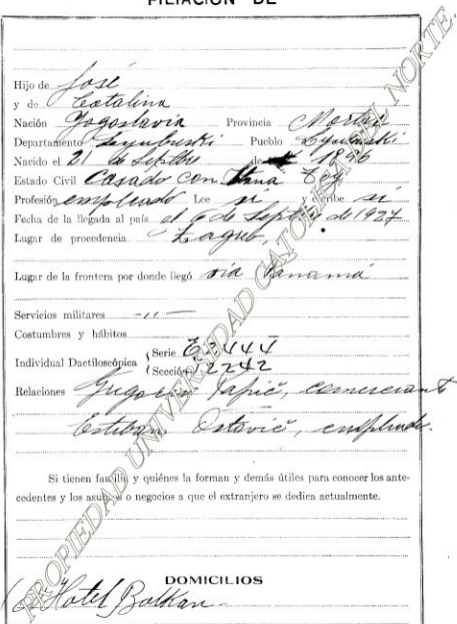 FILIACIÓN DE
Hijo de José
y de Catalina
Nación Yogoslavia Provincia Mostar
Departamento Lyubuski Pueblo Lyubuski
Nacido el 21 de Septbre de 1896
Estado Civil Casado con Ana
Profesión empleado Lee si y escribe si
Fecha de la llegada al país el 6 de Septbre de 1927
Lugar de procedencia Zagreb,
Lugar de la frontera por donde llegó vía Panamá
Servicios militares -"-
Costumbres y hábitos
Individual Dactiloscópica Serie E-3444
Sección I2242
Relaciones Gregorio Japić, comerciant
Esteban Ostović, empleado.
Si tienen familia y quiénes la forman y demás útiles para conocer los ante-
cedentes y los asuntos o negocios a que el extranjero se dedica actualmente.
DOMICILIOS
Hotel Balkan
PROPIEDAD UNIVERSIDAD CATOLICA DEL NORTE.